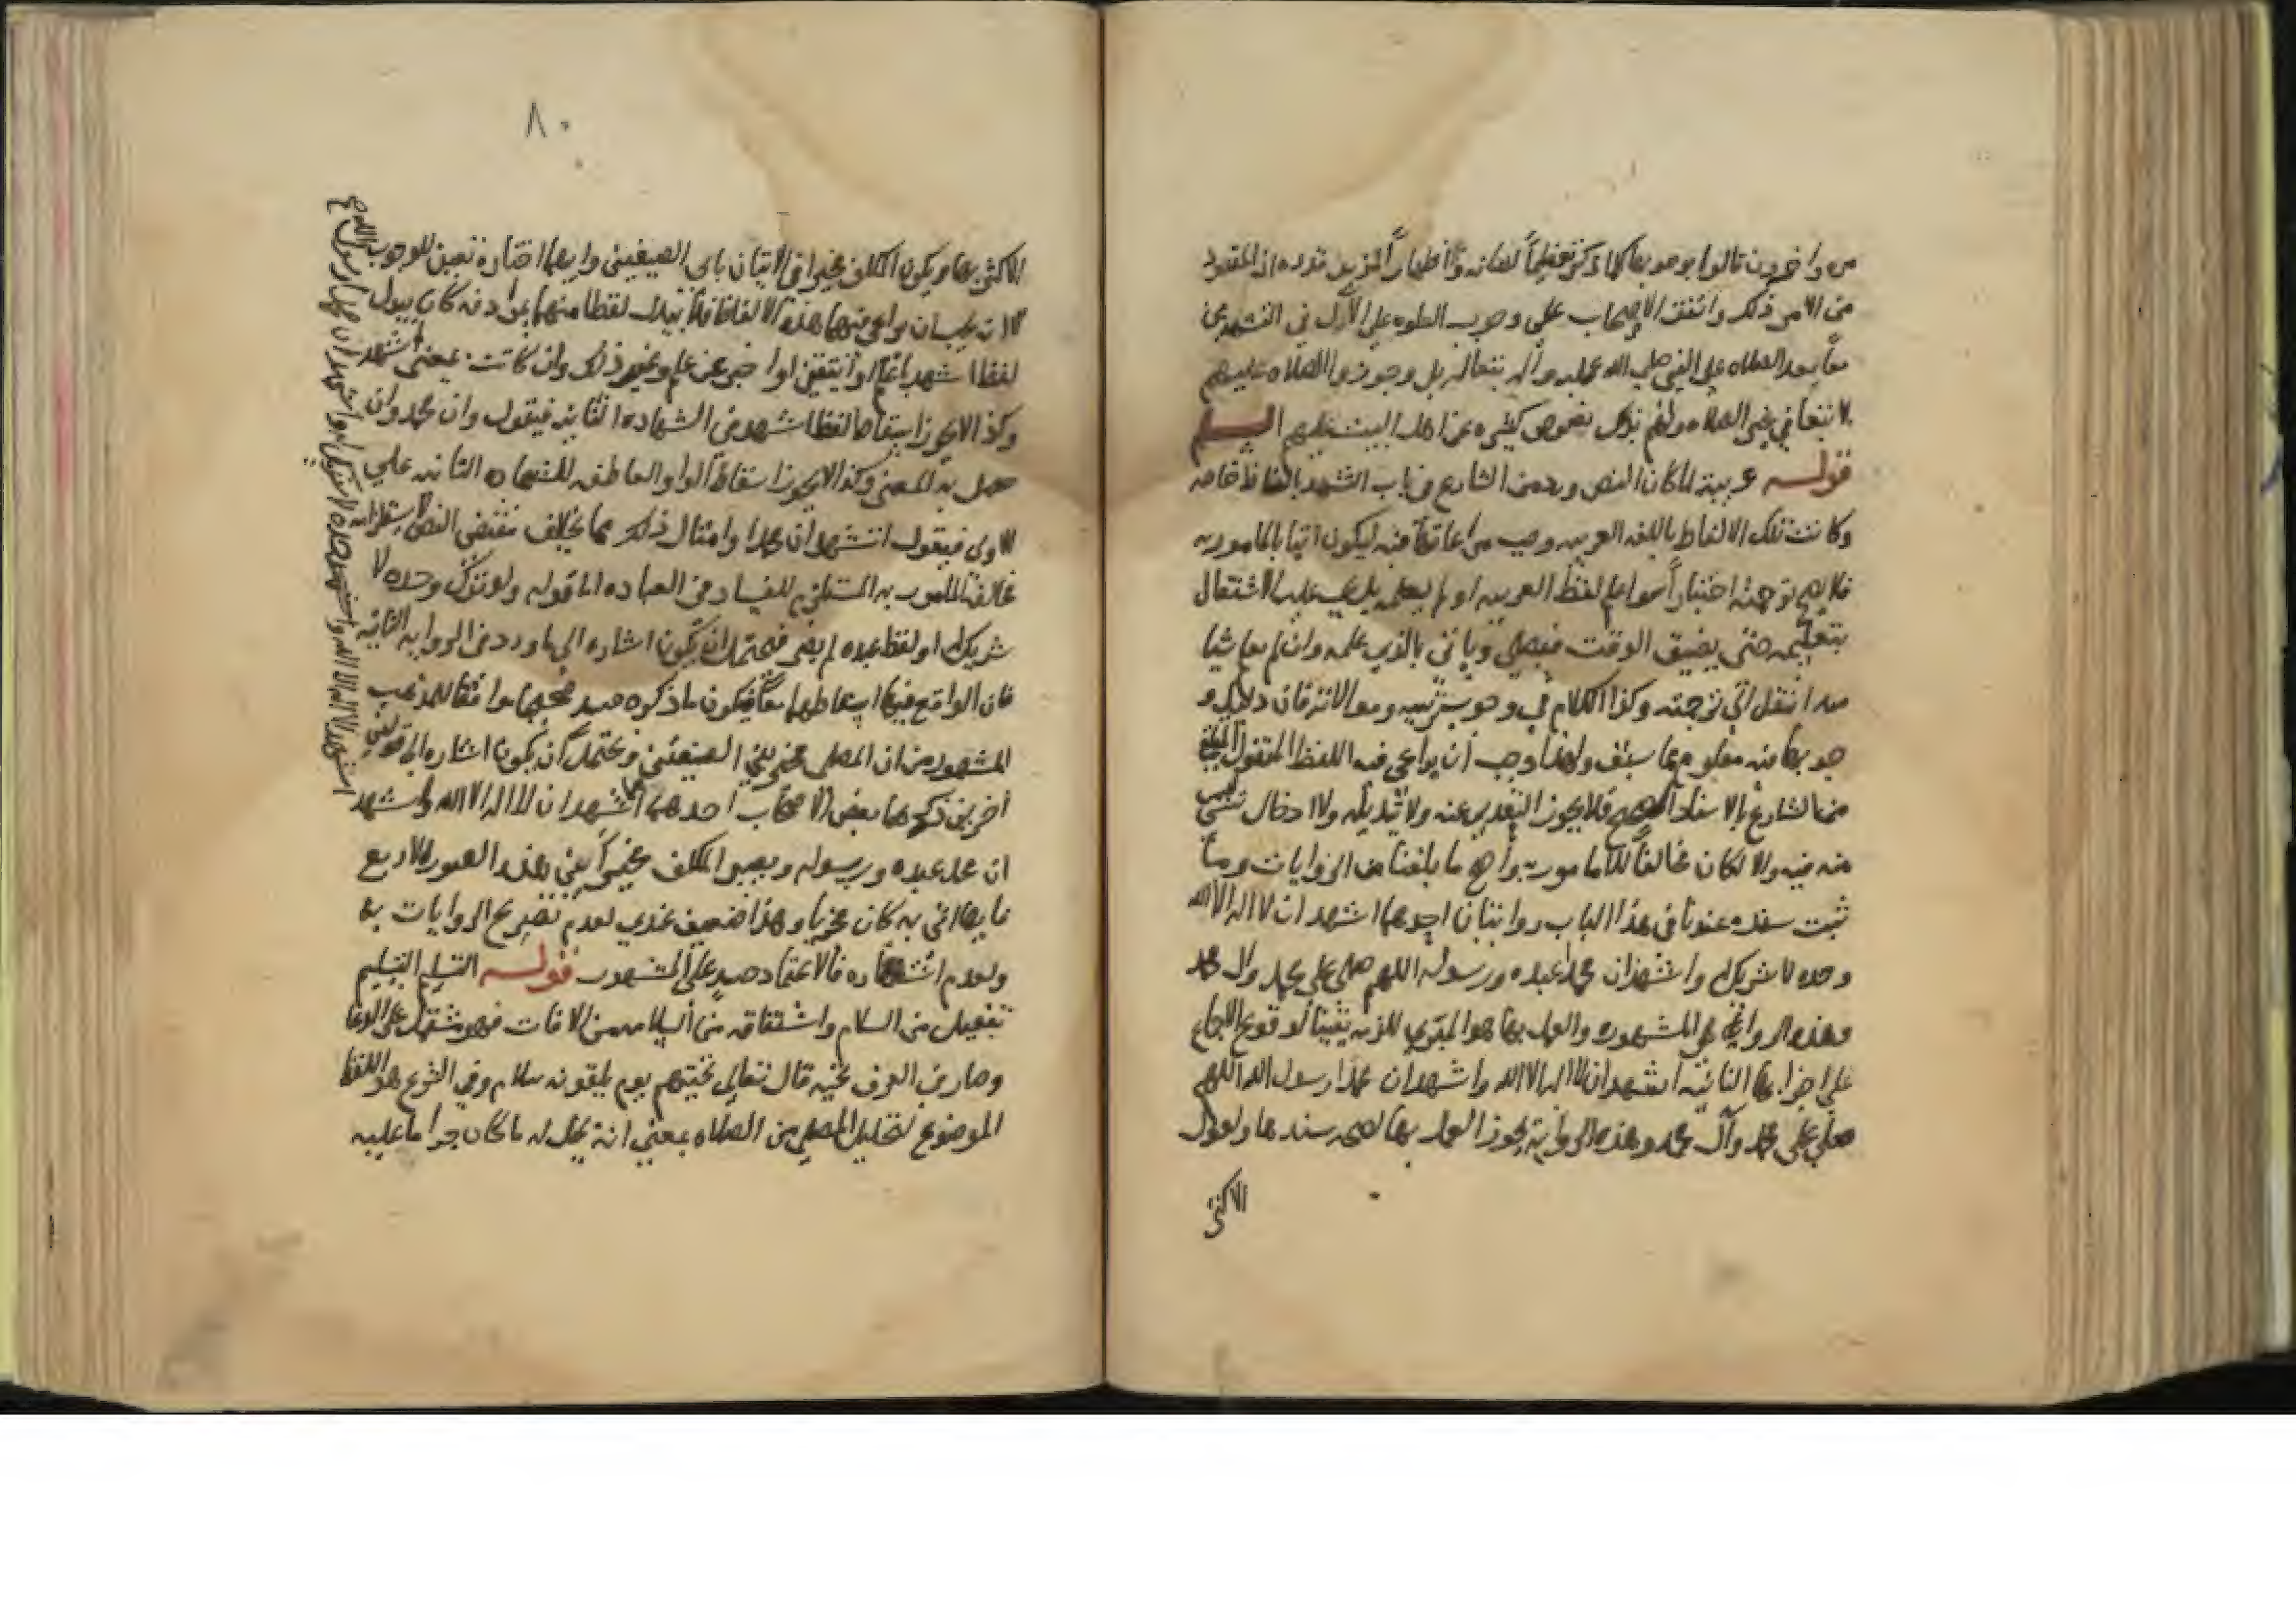 مره واخرون قالوا بوجوبها كلما ذكر تعظيما لشانه واظهارا لمزيد قدره اذ المقصود
من الامر ذلك واتفق الاصحاب على وجوب الصلوه على الآل في التشهدين
معا بعد الصلاه على النبي صلى الله عليه وآله بل وجوزوا الصلاه عليهم
لا تبعا في غير الصلاه ولهم بذلك نصوص كثيره عن اهل البيت عليهم السلم
قوله عربية لما كان النص ورد من الشارع في باب التشهد بالفاظ خاصه
وكانت تلك الالفاظ باللغه العربيه وجب مراعاتها فيه ليكون اتيا بالمامور به
فلا يصح ترجمته اختيارا سوا علم لفظ العربيه او لم يعلمه بل يجب عليه الاشتغال
بتعلمه حتى يضيق الوقت فيصلي وياتي بالذي علمه وان لم يعلم شيا
منه انتقل الى ترجمته وكذا الكلام في وجوب ترتيبه وموالاته فان دليل و
جوبها منه معلوم مما سبق ولهذا وجب ان يراعى فيه اللفظ المنقول
من الشارع بالاسناد الصحيح فلا يجوز التعدي عنه ولا تبديله ولا ادخال شي ليس
منه فيه والا لكان مخالفا للمامور به واصح ما بلغنا من الروايات وما
ثبت سنده عندنا في هذا الباب روايتان احدهما اشهد ان لا اله الا الله
وحده لا شريك له واشهد ان محمدا عبده ورسوله اللهم صلى على محمد وال محمد
وهذه الروايه هي المشهوره والعمل بها هو المبري للذمه يقينا لوقوع الاجماع
على اجزائها الثانيه اشهد ان لا اله الا الله واشهد ان محمدا رسول الله اللهم
صلي على محمد وآل محمد وهذه الرواية يجوز العمل بها لصحه سندها ولعمل
الاكثر
٨٠
الاكثر بها ويكون المكلف مخيرا في الاتيان باي الصيغتين وايهما اختاره تعين للوجوب
الا انه يجب ان يراعي فيهما هذه الالفاظ فلا يبدل لفظا منهما بمرادفه كان يبدل
لفظ اشهد باعلم او اتيقن او اخبر عن علم وغير ذلك وان كانت بمعنى اشهد
وكذا لا يجوز اسقاط لفظ اشهد من الشهاده الثانيه فيقول وان محمد وان
حصل به المعنى وكذا لا يجوز اسقاط الواو العاطفه للشهاده الثانيه على
الاولى فيقول اشهد ان محمدا وامثال ذلك مما يخالف مقتضى النص لاستلزامه
مخالفة المامور به المستلزم للفساد في العباده اما قوله ولو ترك وحده لا
شريك له او لفظ عبده لم يضر فيحتمل ان يكون اشاره الى ما ورد في الروايه الثانيه
فان الواقع فيها اسقاطهما معا فيكون ما ذكره موافقا للمذهب
المشهور من ان المصلي مخير بين الصيغتين ويحتمل ان يكون اشاره الى قولين
آخرين ذكرهما بعض الاصحاب احدهما اشهد ان لا اله الا الله واشهد
ان محمد عبده ورسوله ويصير المكلف مخيرا بين هذه الصور الاربع
فايها اتى به كان مجزيا وهذا ضعيف عندي لعدم تصريح الروايات بها
ولعدم اشتهاره فالاعتماد على المشهور قوله التسليم التسليم
تفعيل من السلام واشتقاقه من السلامه من الافات فهو مشتمل على الدعا
وصار في العرف تحيه قال تعالى تحيتهم يوم يلقونه سلام وفي الشرع هو اللفظ
الموضوع لتحليل المصلي من الصلاه بمعنى انه يحل له ما كان حراما عليه
اشهد ان لا اله الا الله وحده لا شريك له واشهد ان محمدا رسول الله